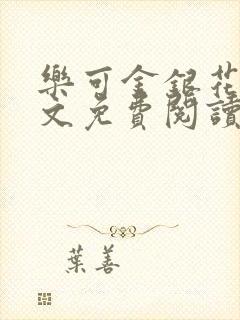 樂可金銀花
文免費閱讀
葉善